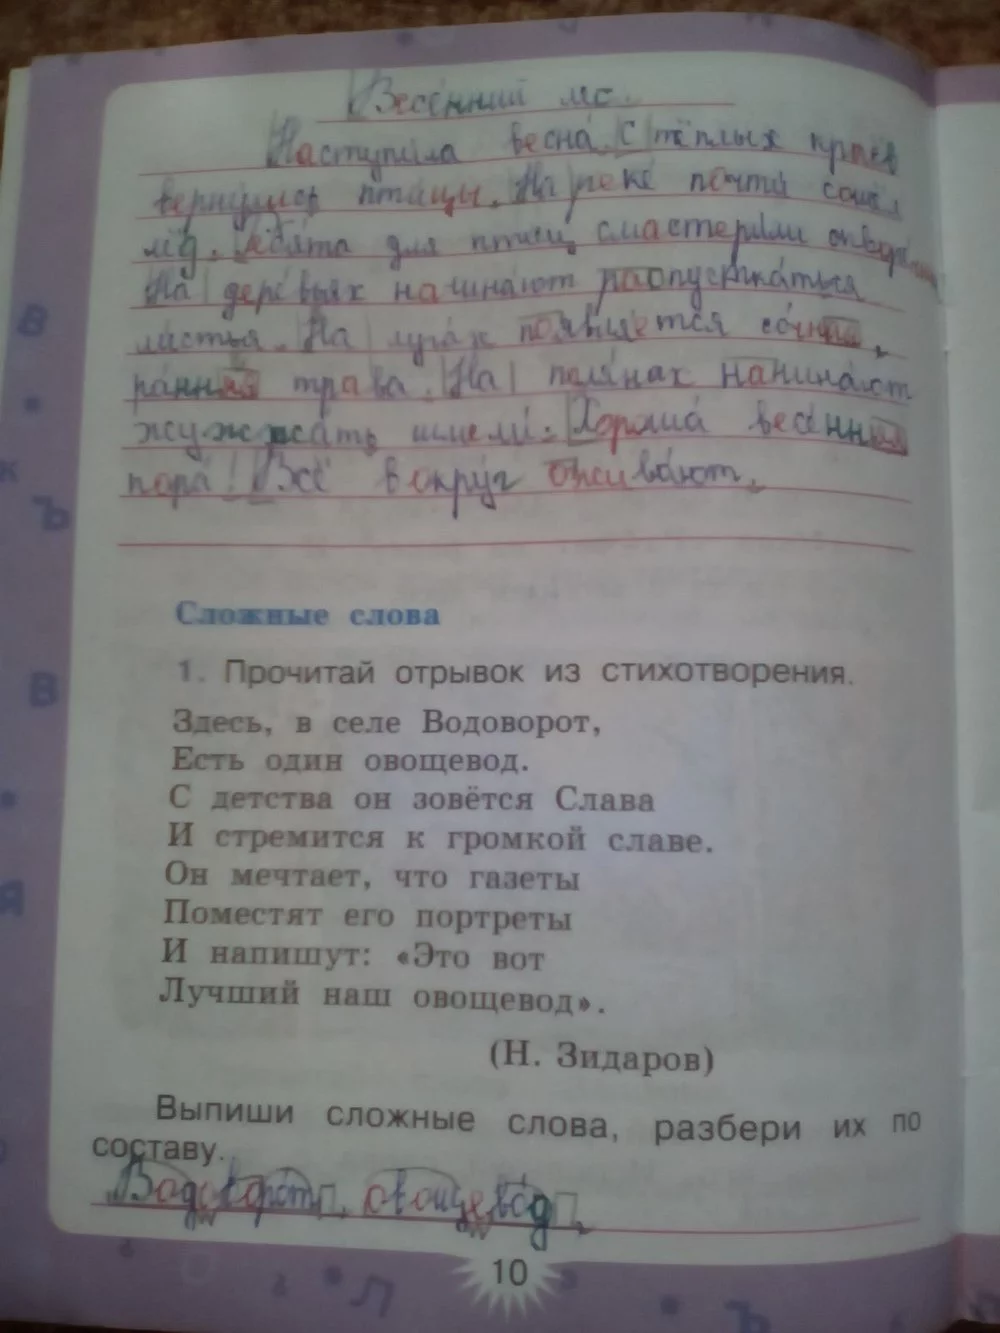 Весенний
Наступила весна. С тёплых краёв
вернулись птицы. На реке почти сошёл
лёд. Ребята для птиц смастерили
На деревьях начинают распускаться
листья. На лугах появляется сочная,
ранняя трава. На полянах начинают
жужжать шмели. Хороша весенняя
пора! Всё вокруг оживают.
Сложные слова
1. Прочитай отрывок из стихотворения.
Здесь, в селе Водоворот,
Есть один овощевод.
С детства он зовётся Слава
И стремится к громкой славе.
Он мечтает, что газеты
Поместят его портреты
И напишут: «Это вот
Лучший наш овощевод».
(Н. Зидаров)
Выпиши сложные слова, разбери их по
составу.
Водоворот, овощевод.
10